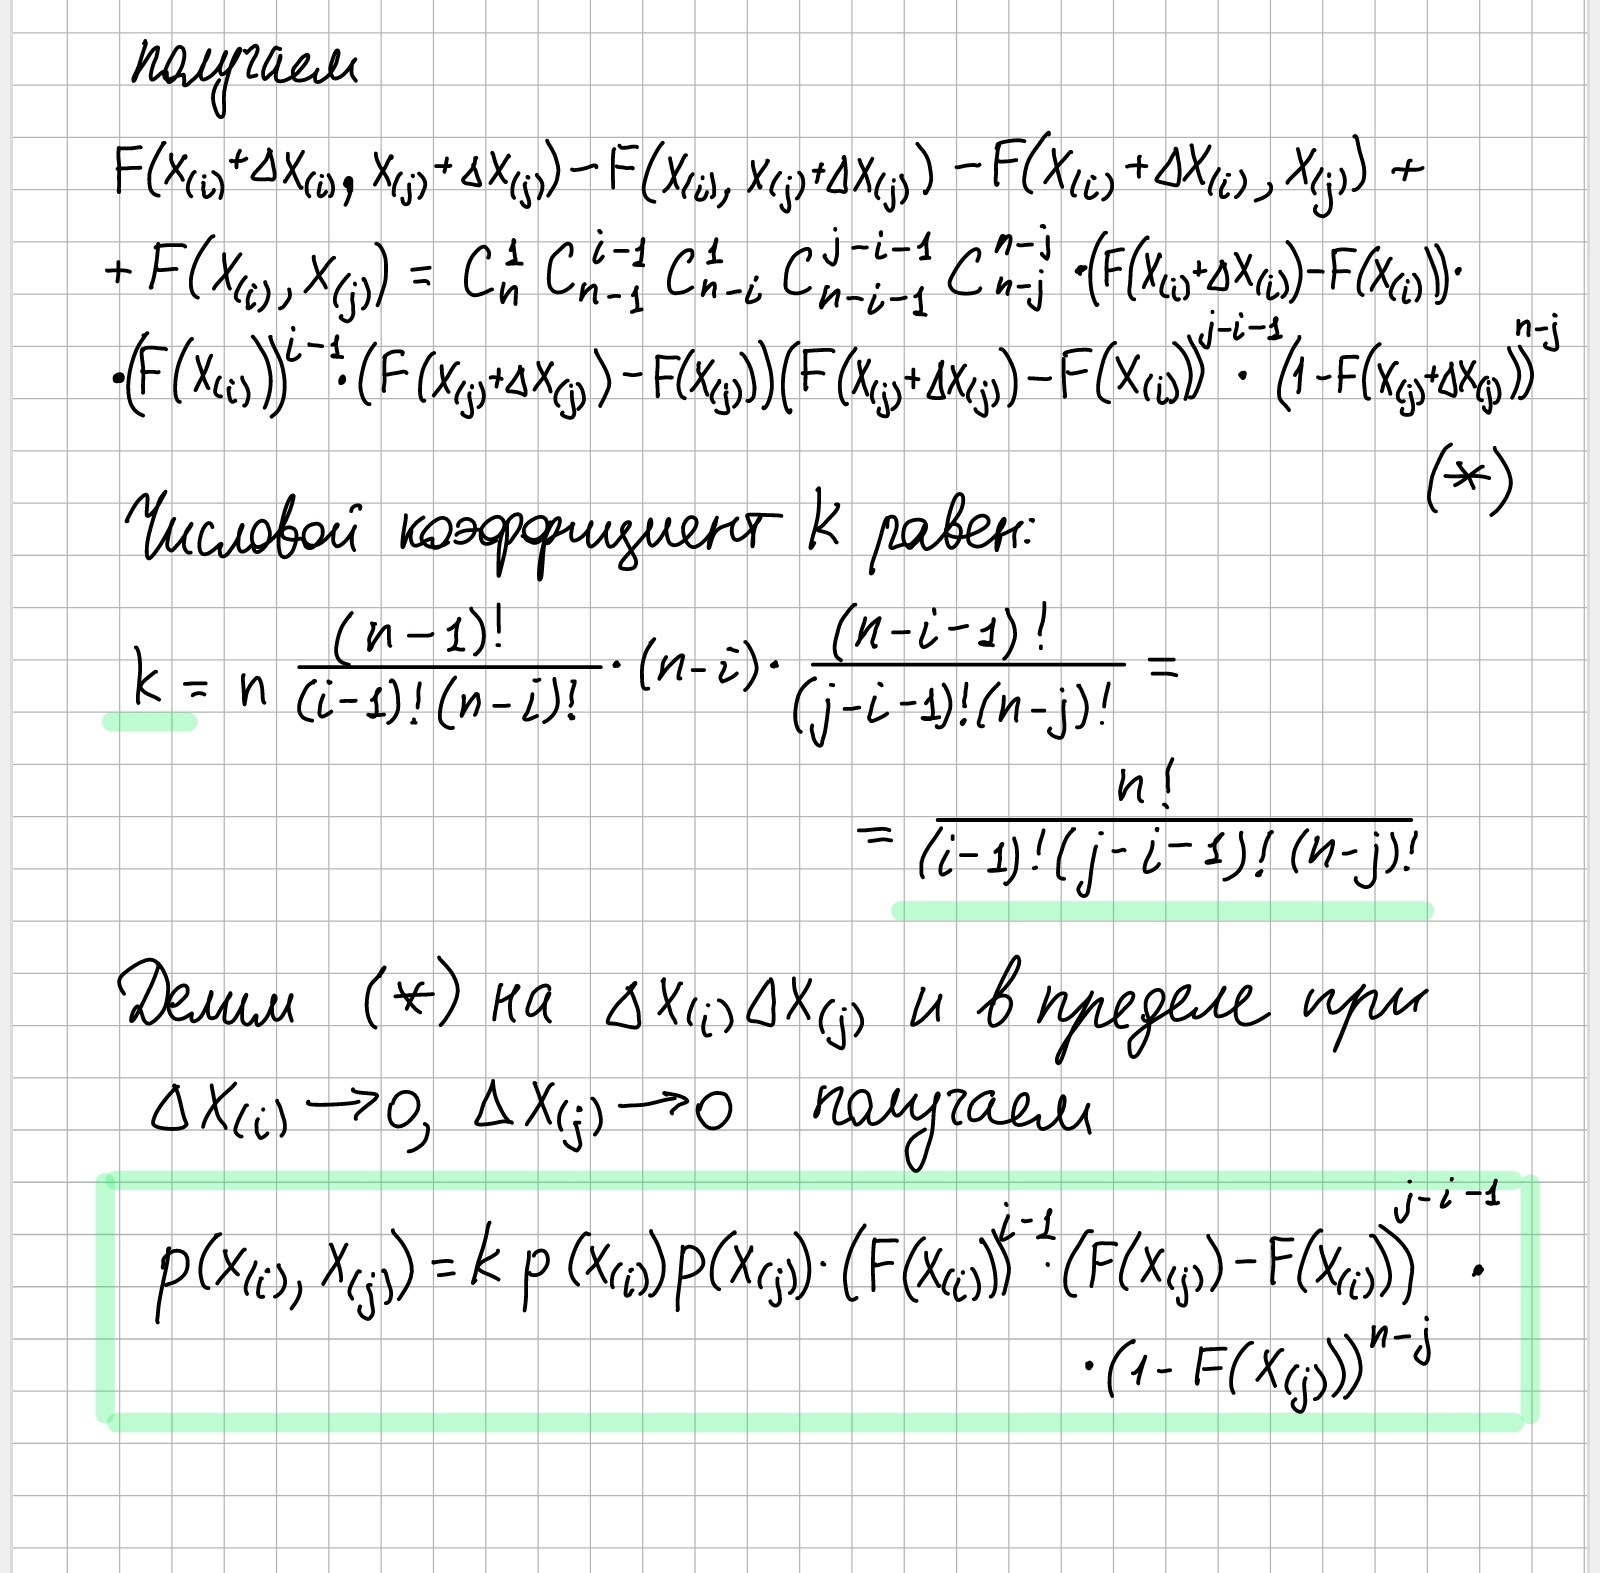 получаем
F(x₍ᵢ₎+Δx₍ᵢ₎, x₍ⱼ₎+Δx₍ⱼ₎)−F(x₍ᵢ₎, x₍ⱼ₎+Δx₍ⱼ₎) −F(x₍ᵢ₎+Δx₍ᵢ₎, x₍ⱼ₎) +
+ F(x₍ᵢ₎, x₍ⱼ₎) = C_n^1 C_{n-1}^{i-1} C_{n-i}^1 C_{n-i-1}^{j-i-1} C_{n-j}^{n-j} ·(F(x₍ᵢ₎+Δx₍ᵢ₎)−F(x₍ᵢ₎))·
·(F(x₍ᵢ₎))^{i-1}·(F(x₍ⱼ₎+Δx₍ⱼ₎)−F(x₍ⱼ₎))(F(x₍ⱼ₎+Δx₍ⱼ₎)−F(x₍ᵢ₎))^{j-i-1} · (1−F(x₍ⱼ₎+Δx₍ⱼ₎))^{n-j}
(*)
Числовой коэффициент k равен:
k = n \frac{(n-1)!}{(i-1)!(n-i)!} · (n-i) · \frac{(n-i-1)!}{(j-i-1)!(n-j)!} =
= \frac{n!}{(i-1)!(j-i-1)!(n-j)!}
Делим (*) на Δx₍ᵢ₎Δx₍ⱼ₎ и в пределе при
Δx₍ᵢ₎→0, Δx₍ⱼ₎→0 получаем
p(x₍ᵢ₎, x₍ⱼ₎) = k p(x₍ᵢ₎)p(x₍ⱼ₎)·(F(x₍ᵢ₎))^{i-1}·(F(x₍ⱼ₎)−F(x₍ᵢ₎))^{j-i-1} ·
·(1−F(x₍ⱼ₎))^{n-j}